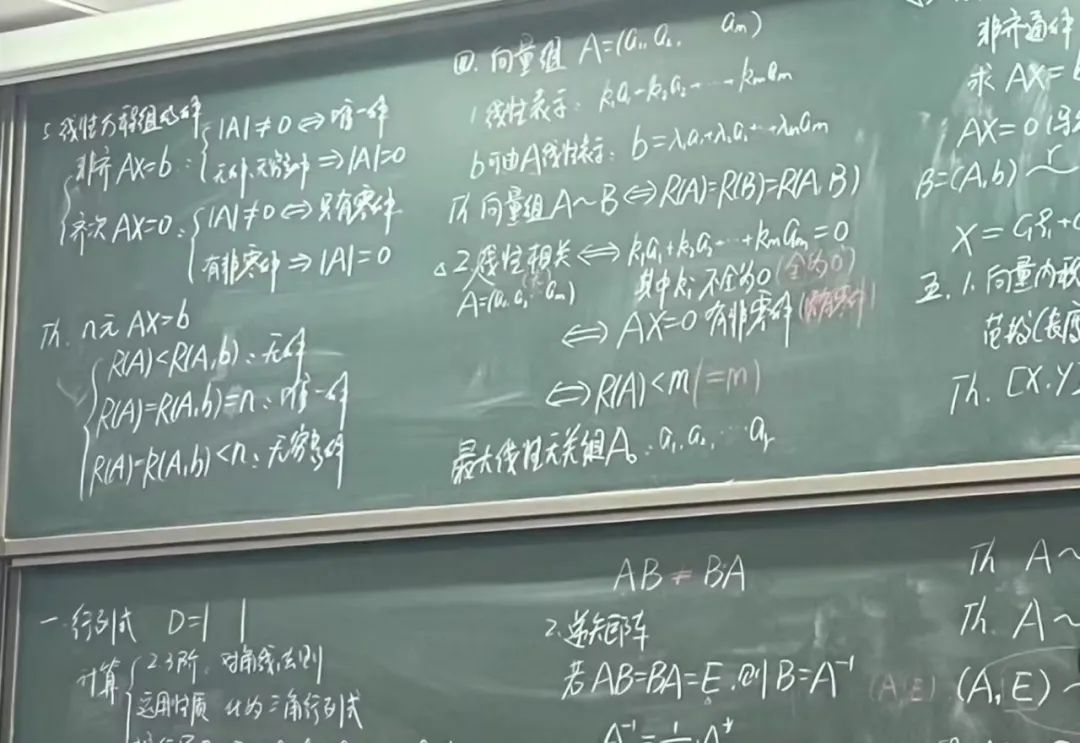 5. 线性方程组的解
非齐 AX=b: |A|≠0⇔唯一解
无解、无穷解⇒|A|=0
齐次 AX=0: |A|≠0⇔只有零解
有非零解⇒|A|=0
Th. n元 AX=b
R(A)<R(A,b): 无解
R(A)=R(A,b)=n: 唯一解
R(A)=R(A,b)<n: 无穷多解
四. 向量组 A=(a₁, a₂, am)
1. 线性表示: k₁a₁+k₂a₂+…+kmam
b可由A线性表示: b=λ₁a₁+λ₂a₂+…+λmam
Th 向量组A~B⇔R(A)=R(B)=R(A,B)
△2. 线性相关⇔k₁a₁+k₂a₂+…+kmam=0
(无)
A=(a₁, a₂ am) 其中ki不全为0 (全为0)
⇔AX=0 有非零解
⇔R(A)<m (=m)
最大线性无关组A₀: a₁, a₂, …ar
非齐通解
求 AX=
AX=0
B=(A,b) r~
X=C₁ξ₁+C
五. 1. 向量内积
范数(长度
Th. [X,Y]
一. 行列式 D=| |
计算 2.3阶, 对角线法则
运用性质 化为三角行列式
AB≠BA
2. 逆矩阵
若AB=BA=E, 则B=A⁻¹
A⁻¹=1 A*
Th A~
Th. A~
(A E) (A,E)~